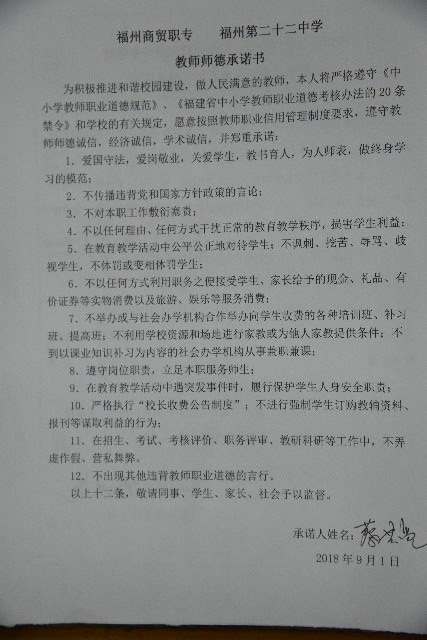 福州商贸职专 福州第二十二中学
教师师德承诺书
为积极推进和谐校园建设，做人民满意的教师，本人将严格遵守《中
小学教师职业道德规范》、《福建省中小学教师职业道德考核办法的 20 条
禁令》和学校的有关规定，愿意按照教师职业信用管理制度要求，遵守教
师师德诚信，经济诚信，学术诚信，并郑重承诺：
1．爱国守法，爱岗敬业，关爱学生，教书育人，为人师表，做终身学
习的模范；
2．不传播违背党和国家方针政策的言论；
3．不对本职工作敷衍塞责；
4．不以任何理由、任何方式干扰正常的教育教学秩序，损害学生利益；
5．在教育教学活动中公平公正地对待学生；不讽刺、挖苦、辱骂、歧
视学生，不体罚或变相体罚学生；
6．不以任何方式利用职务之便接受学生、家长给予的现金、礼品、有
价证券等实物消费以及旅游、娱乐等服务消费；
7．不举办或与社会办学机构合作举办向学生收费的各种培训班、补习
班、提高班；不利用学校资源和场地进行家教或为他人家教提供条件；不
到以课业知识补习为内容的社会办学机构从事兼职兼课；
8．遵守岗位职责，立足本职服务师生；
9．在教育教学活动中遇突发事件时，履行保护学生人身安全职责；
10．严格执行“校长收费公告制度”；不进行强制学生订购教辅资料、
报刊等谋取利益的行为；
11．在招生、考试、考核评价、职务评审、教研科研等工作中，不弄
虚作假、营私舞弊。
12．不出现其他违背教师职业道德的言行。
以上十二条，敬请同事、学生、家长、社会予以监督。
承诺人姓名：
2018 年 9 月 1 日